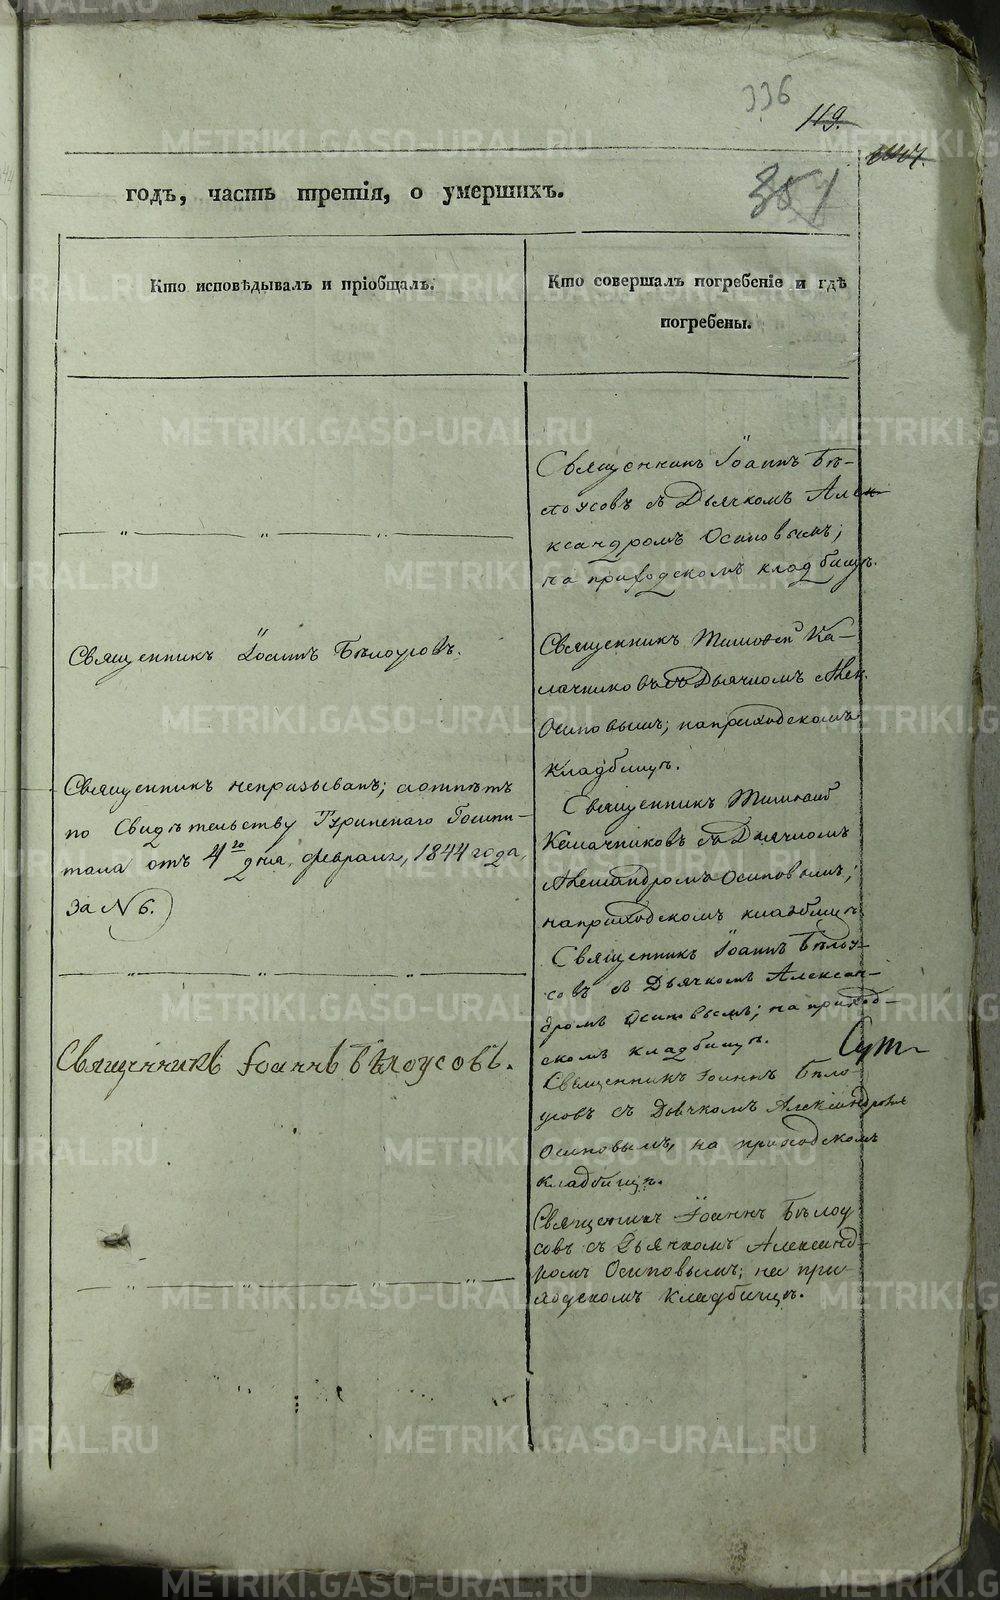 336
119.
351
годъ, часть третія, о умершихъ.
Кто исповѣдывалъ и пріобщалъ.
Кто совершалъ погребеніе и гдѣ
погребены.
Священникъ Іоаннъ Бѣ-
лоусовъ съ Дьячкомъ Алек-
ксандромъ Осиповымъ;
на приходскомъ кладбищѣ.
Священникъ Іоаннъ Бѣлоусовъ.
Священникъ Тимофей Ка-
лачниковъ съ Дьячкомъ Алек.
Осиповымъ; на приходскомъ
кладбищѣ.
Священникъ непризыванъ; а отпѣтъ
по Свидѣтельству Туринскаго Гошпи-
тала отъ 4го дня, февраля, 1844 года,
за № 6.
Священникъ Тимофей
Калачниковъ съ Дьячкомъ
Александромъ Осиповымъ;
на приходскомъ кладбищѣ
Священникъ Іоаннъ Бѣлоу-
совъ съ Дьячкомъ Алексан-
дромъ Осиповымъ; на приход-
скомъ кладбищѣ.
Сут
Священникъ Іоаннъ Бѣлоусовъ.
Священникъ Іоаннъ Бѣло-
усовъ съ Дьячкомъ Александромъ
Осиповымъ, на приходскомъ
кладбищѣ.
Священникъ Іоаннъ Бѣлоу
совъ съ Дьячкомъ Александ-
ромъ Осиповымъ; на при
ходскомъ кладбищѣ.
METRIKI.GASO-URAL.RU